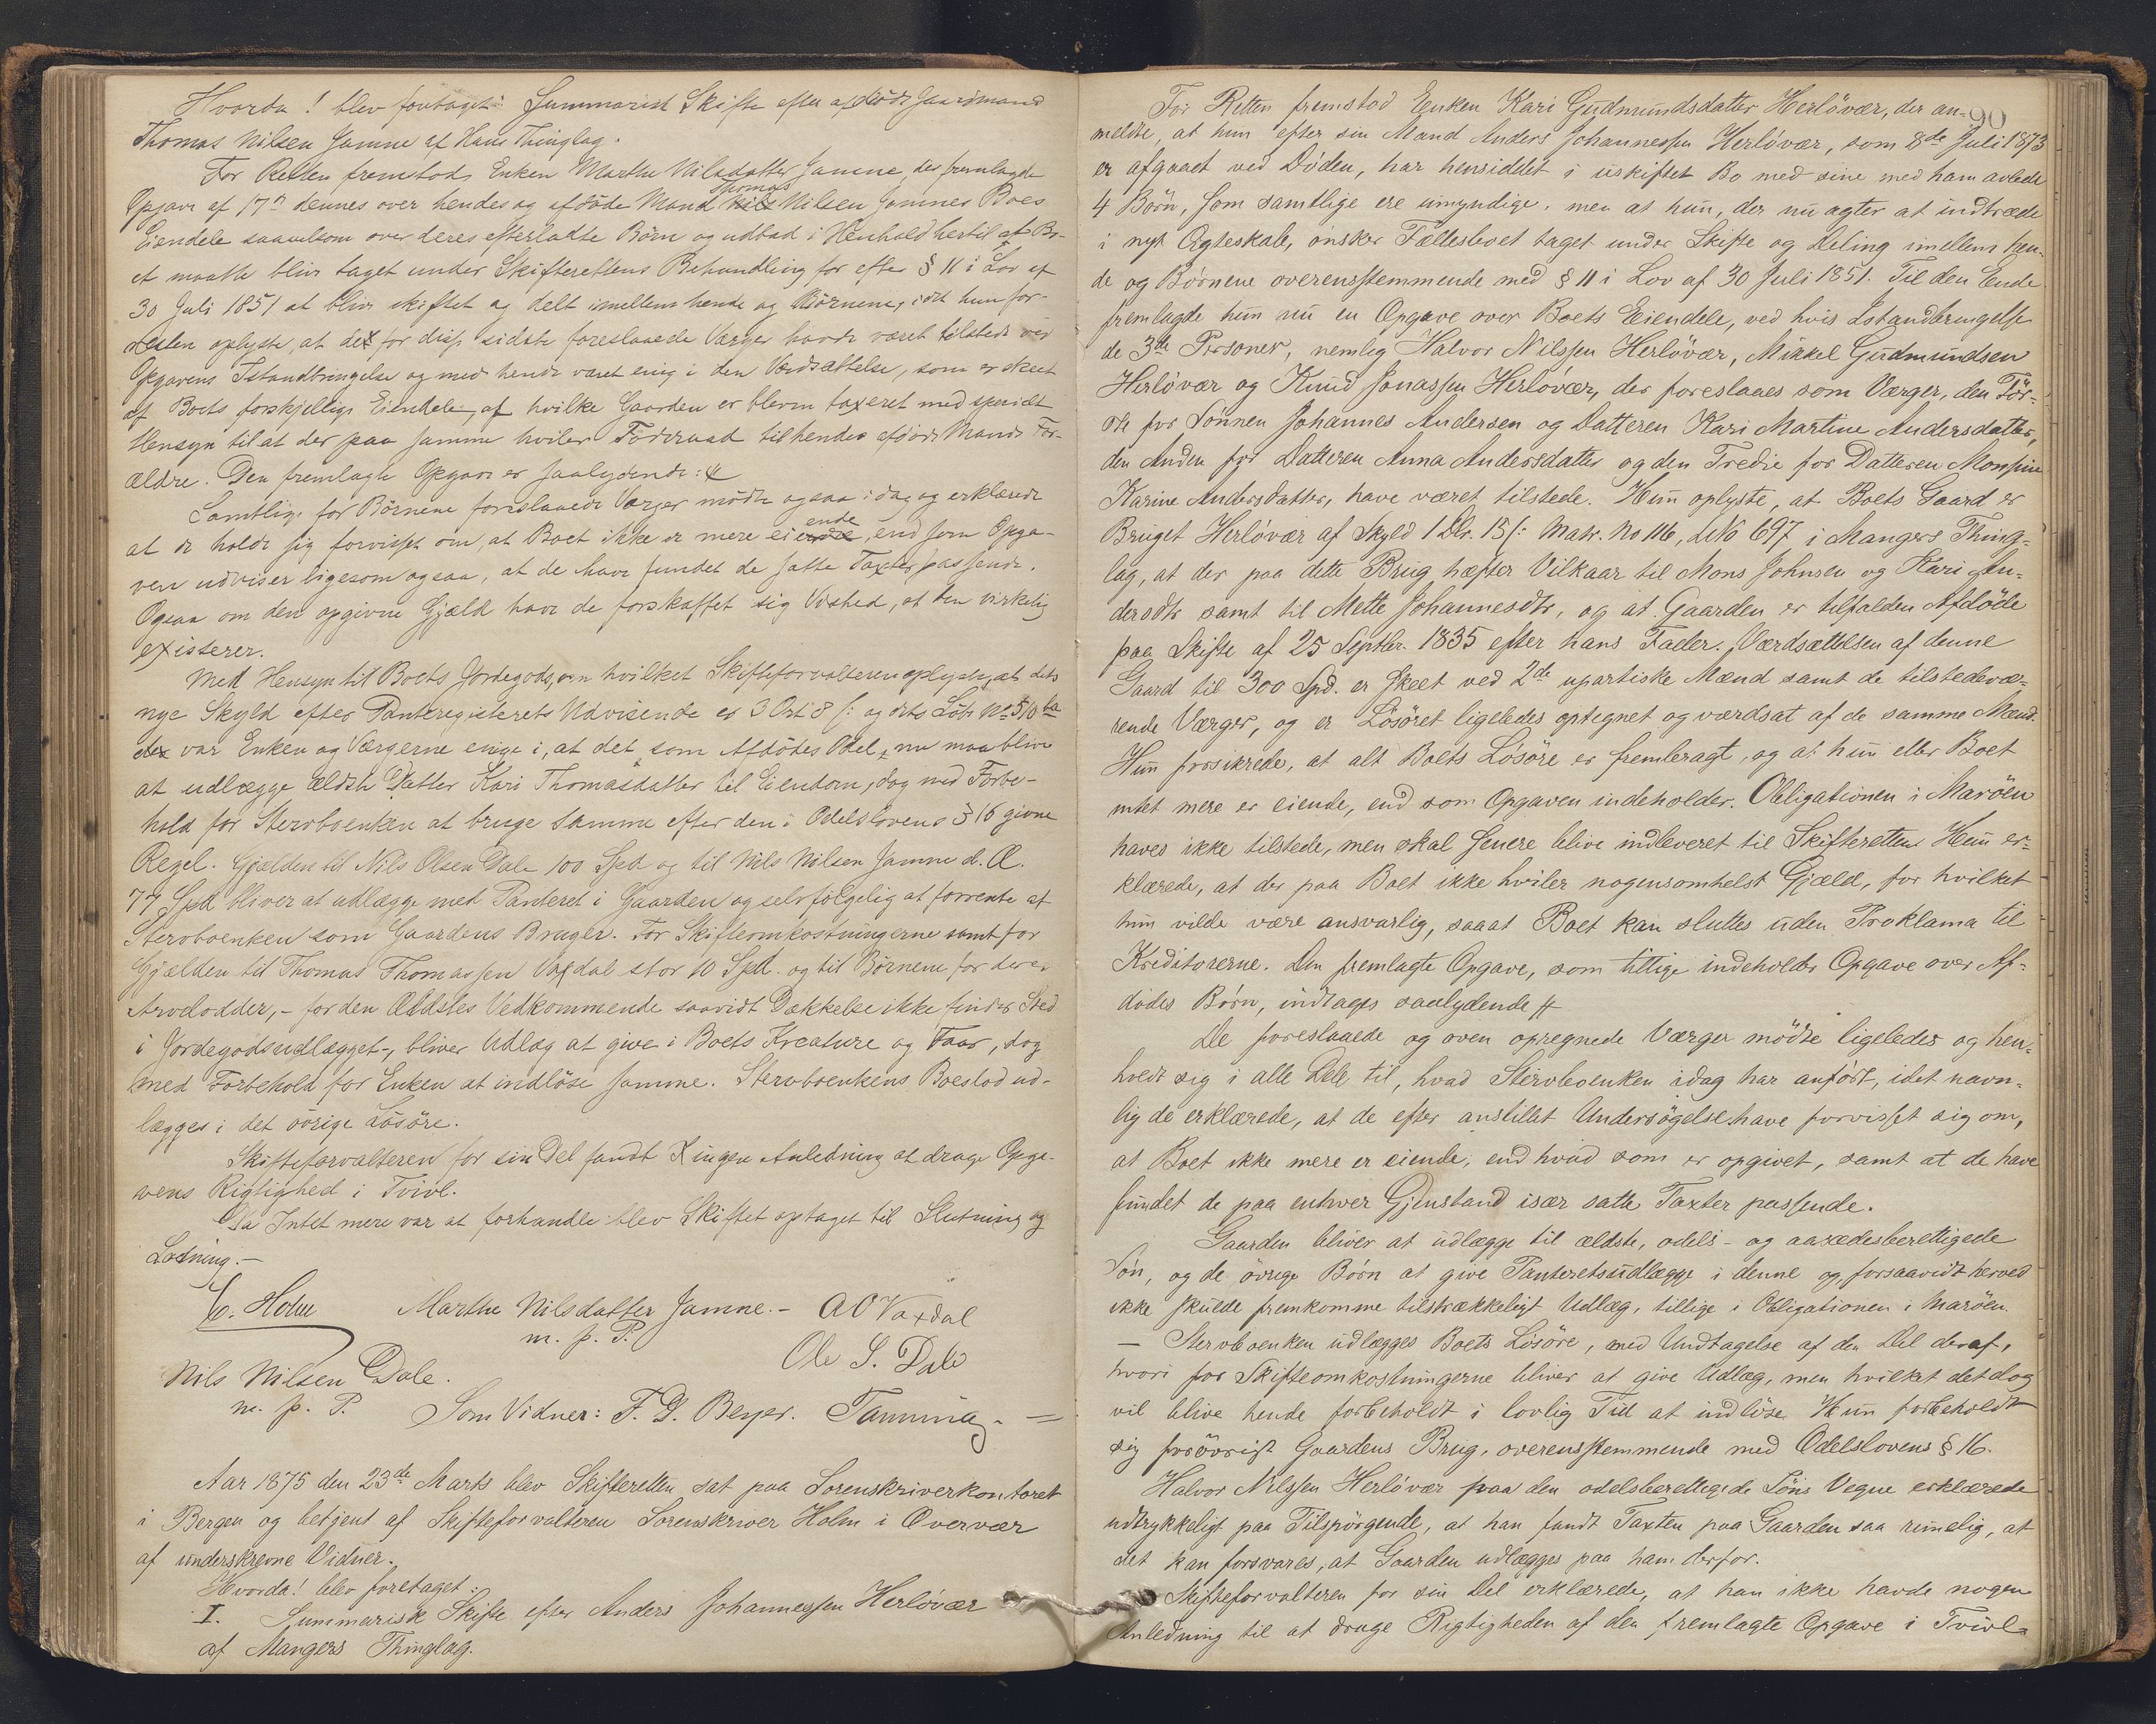 Hvorda! blev foretaget: Summarisk Skifte efter afdöde Gaardmand
Thomas Nilsen Jamne af Haus Thinglag.
For Retten fremstod Enken Marthe Nilsdatter Jamne, der fremlagde
Opgave af 17de dennes over hendes og afdöde Mand Thomas Nilsen Jamnes Boes
Eiendele saavelsom over deres efterladte Börn og udbad i Henhold hertil at Bo-
et maatte blive taget under Skifterettens Behandling for efter § 11 i Lov af
30 Juli 1851 at blive skiftet og delt imellem hende og Börnene, idet hun for-
resten oplyste, at de for disse sidste foreslaaede Værger havde været tilstede ved
Opgavens Istandbringelse og med hende været enig i den Værdsættelse, som er skeet
af Boets forskjellige Eiendele, af hvilke Gaarden er bleven taxeret med specielt
Hensyn til at der paa samme hviler Föderaad til hendes afdöde Mands For-
ældre. Den fremlagte Opgave er saalydende:
Samtlige for Börnene foreslaaede Værger mödte ogsaa idag og erklærede
at de holde sig forvisset om, at Boet ikke er mere eiende, end som Opga-
ven udviser ligesom ogsaa, at de have fundet de satte Taxter passende.
Ogsaa om den opgivne Gjæld have de forskaffet sig Vished, at den virkelig
existerer.
Med Hensyn til Boets Jordegods, om hvilket Skifteforvalteren oplyste, at dets
nye Skyld efter Panteregisterets Udvisende er 3 Ort 8 s: og dets Löbe No 510 ba
var Enken og Værgerne enige i, at det som Afdödes Odel, nu maa blive
at udlægge ældste Datter Kari Thomasdatter til Eiendom, dog med Forbe-
hold for Stervboenken at bruge samme efter den i Odelslovens § 16 givne
Regel. Gjælden til Nils Olsen Dale 100 Spd og til Nils Nilsen Jamne d. Æ.
77 Spd bliver at udlægge med Panteret i Gaarden og selvfölgelig at forrente af
Stervboenken som Gaardens Bruger. For Skifteomkostningerne samt for
Gjælden til Thomas Thomassen Vaxdal stor 10 Spd. og til Börnene for deres
Arvelodder, - for den Ældstes Vedkommende saavidt Dækkelse ikke finder Sted
i Jordegodsudlægget, bliver Udlæg at give i Boets Kreature og Faar, dog
med Forbehold for Enken at indlöse samme. Stervboenkens Boeslod ud-
lægges i det övrige Lösöre.
Skifteforvalteren for sin Del fandt Ingen Anledning at drage Opga-
vens Rigtighed i Tvivl.
Da Intet mere var at forhandle blev Skiftet optaget til Slutning og
Lodning. -
C. Holm Marthe Nilsdatter Jamne. - AO Vaxdal
m. p. P.
Nils Nilsen Dale. Ole S. Dale
m. p. P. Som Vidner: F. D. Beyer. Tanning. =
Aar 1875 den 23de Marts blev Skifteretten sat paa Sorenskriverkontoret
i Bergen og betjent af Skifteforvalteren Sorenskriver Holm i Overvær
af underskrevne Vidner.
Hvorda! blev foretaget:
I. Summarisk Skifte efter Anders Johannessen Herlövær
af Mangers Thinglag.
90
For Retten fremstod Enken Kari Gudmundsdatter Herlövær, der an-
meldte, at hun efter sin Mand Anders Johannessen Herlövær, som 8de Juli 1873
er afgaaet ved Döden, har hensiddet i uskiftet Bo med sine med ham avlede
4 Börn, som samtlige ere umyndige, men at hun, der nu agter at indtræde
i nyt Ægteskab, önsker Fællesboet taget under Skifte og Deling imellem hen-
de og Börnene overensstemmende med § 11 i Lov af 30 Juli 1851. Til den Ende
fremlagde hun nu en Opgave over Boets Eiendele, ved hvis Istandbringelse
de 3de Personer, nemlig Halvor Nilssen Herlövær, Mikkel Gudmundsen
Herlövær og Knud Jonassen Herlövær, der foreslaaes som Værger, den För-
ste for Sönnen Johannes Andersen og Datteren Kari Martine Andersdatter,
den Anden for Datteren Anna Andersdatter og den Tredie for Datteren Monsine
Karine Andersdatter, have været tilstede. Hun oplyste, at Boets Gaard er
Bruget Herlövær af Skyld 1 Dlr. 15 s: Matr. No 116, LNo 697 i Mangers Thing-
lag, at der paa dette Brug hæfter Vilkaar til Mons Johnsen og Kari An-
dersdtr samt til Mette Johannesdtr, og at Gaarden er tilfalden Afdöde
paa Skifte af 25 Septbr. 1835 efter hans Fader. Værdsættelsen af denne
Gaard til 300 Spd. er skeet ved 2de upartiske Mænd samt de tilstedevæ-
rende Værger, og er Lösöret ligeledes optegnet og værdsat af de samme Mænd.
Hun forsikrede, at alt Boets Lösöre er fremlragt, og at hun eller Boet
intet mere er eiende, end som Opgaven indeholder. Obligationen i Maröen
haves ikke tilstede, men skal senere blive indleveret til Skifteretten. Hun er-
klærede, at der paa Boet ikke hviler nogensomhelst Gjæld, for hvilket
hun vilde være ansvarlig, saaat Boet kan sluttes uden Proklama til
Kreditorerne. Den fremlagte Opgave, som tillige indeholder Opgave over Af-
dödes Börn, indtages saalydende
De foreslaaede og oven opregnede Værger mödte ligeledes og hen-
holdt sig i alle Dele til, hvad Stervboenken idag har anfört, idet navn-
lig de erklærede, at de efter anstillet Undersögelse have forvisset sig om,
at Boet ikke mere er eiende, end hvad som er opgivet, samt at de have
fundet de paa enhver Gjenstand især satte Taxter passende.
Gaarden bliver at udlægge til ældste, odels- og aasædesberettigede
Sön, og de övrige Börn at give Panteretsudlægge i denne og, forsaavidt herved
ikke skulde fremkomme tilstrækkeligt Udlæg, tillige i Obligationen i Maröen.
— Stervboenken udlægges Boets Lösöre, med Undtagelse af den Del deraf,
hvori for Skifteomkostningerne bliver at give Udlæg, men hvilket det dog
vil blive hende forbeholdt i lovlig Tid at indlöse. Hun forbeholdt
sig forövrigt Gaardens Brug, overensstemmende med Odelslovens § 16.
Halvor Nilssen Herlövær paa den odelsberettigede Söns Vegne erklærede
udtrykkeligt paa Tilspörgende, at han fandt Taxten paa Gaarden saa rimelig, at
det kan forsvares, at Gaarden udlægges paa ham derfor.
Skifteforvalteren for sin Del erklærede, at han ikke havde nogen
Anledning til at drage Rigtigheden af den fremlagte Opgave i Tvivl.